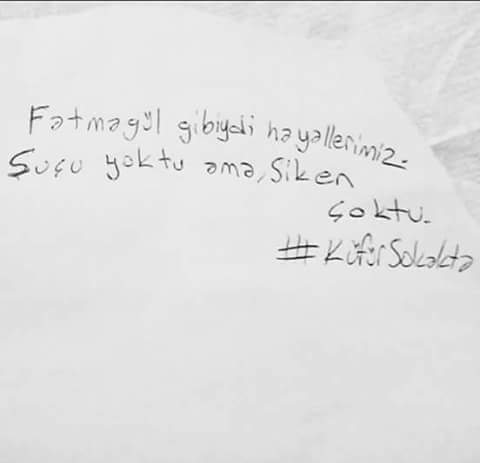 Fatmagül gibiydi hayallerimiz.
Suçu yoktu ama, Siken
çoktu.
#KüfürSokakta